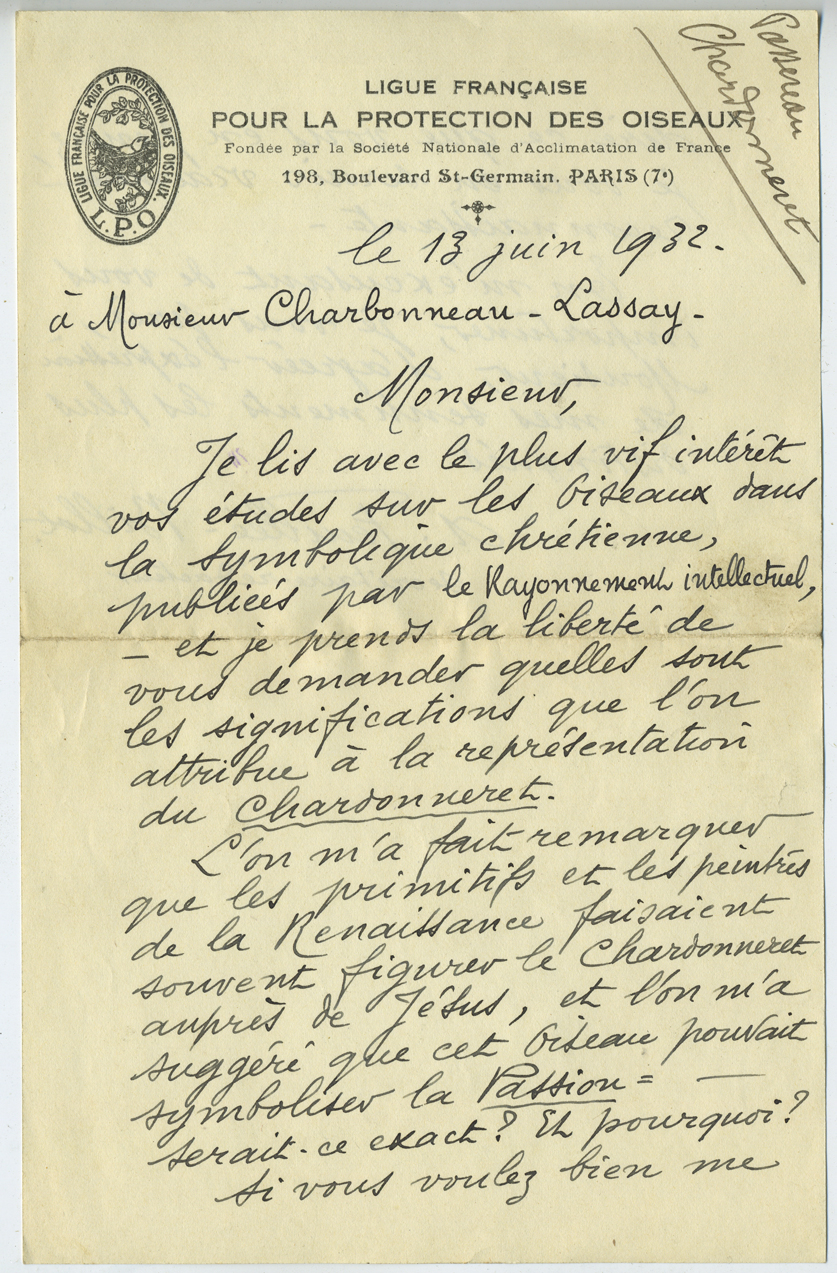 Passereau
Chardonneret
LIGUE FRANÇAISE POUR LA PROTECTION DES OISEAUX.
L.P.O
LIGUE FRANÇAISE
POUR LA PROTECTION DES OISEAUX
Fondée par la Société Nationale d'Acclimatation de France
198, Boulevard St-Germain. PARIS (7e)
le 13 juin 1932.
à Monsieur Charbonneau - Lassay -
Monsieur,
Je lis avec le plus vif intérêt
vos études sur les Oiseaux dans
la symbolique chrétienne,
publiées par le Rayonnement intellectuel,
- et je prends la liberté de
vous demander quelles sont
les significations que l'on
attribue à la représentation
du Chardonneret.
L'on m'a fait remarquer
que les primitifs et les peintres
de la Renaissance faisaient
souvent figurer le Chardonneret
auprès de Jésus, et l'on m'a
suggéré que cet Oiseau pouvait
symboliser la Passion = —
serait-ce exact? Et pourquoi?
Si vous voulez bien me